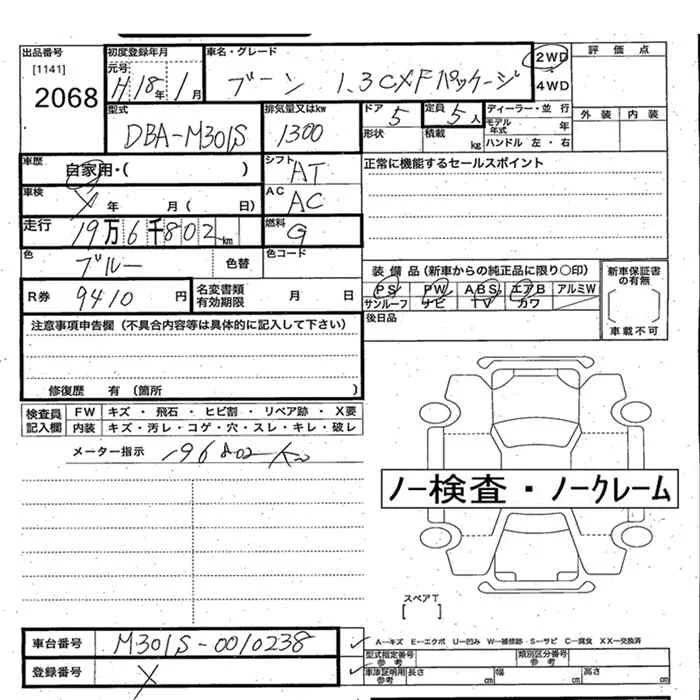 出品番号 初度登録年月 車名・グレード 2WD 評価点
[1141] 元号 H18年 1月 ブーン 1.3CXFパッケージ 4WD
2068
型式 排気量又はkw ドア 5 定員 5人 ディーラー・並行 外装 内装
DBA-M301S 1300 形状 積載 kg モデル年式 年
ハンドル 左・右
車歴 自家用・( ) シフト AT 正常に機能するセールスポイント
車検 X 年 月( 日) AC AC
走行 19万6千802km 燃料 G
色 ブルー 色替 色コード
装備品(新車からの純正品に限り○印) 新車保証書の有無
R券 9410円 名変書類有効期限 月 日 PS PW ABS エアB アルミW
サンルーフ ナビ TV カワ
車載不可
注意事項申告欄(不具合内容等は具体的に記入して下さい) 後日品
修復歴 有(箇所 )
検査員記入欄 FW キズ・飛石・ヒビ割・リペア跡・X要
内装 キズ・汚レ・コゲ・穴・スレ・キレ・破レ
メーター指示 196802 km
ノー検査・ノークレーム
スペアT
[ ]
A-キズ E-エクボ U-凹み W-補修跡 S-サビ C-腐食 XX-交換済
車台番号 M301S-0010238 型式指定番号 参考 類別区分番号 参考
登録番号 X 車庫証明用 参考 長さ cm 幅 cm 高さ cm